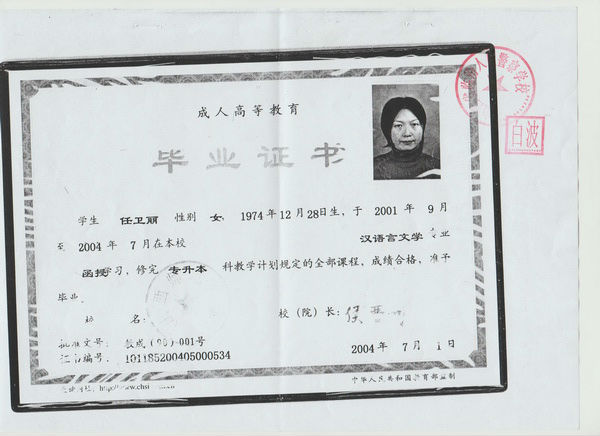 成人高等教育
毕业证书
学生 任卫丽 性别 女, 1974年12月28日生, 于 2001年 9月
至 2004年 7月在本校 汉语言文学 专业
函授学习, 修完 专升本 科教学计划规定的全部课程, 成绩合格, 准予
毕业.
校 名: 校(院)长:
批准文号: 教成(90)-001号
证书编号: 101185200405000534 2004年 7月 1日
中华人民共和国教育部监制
白波